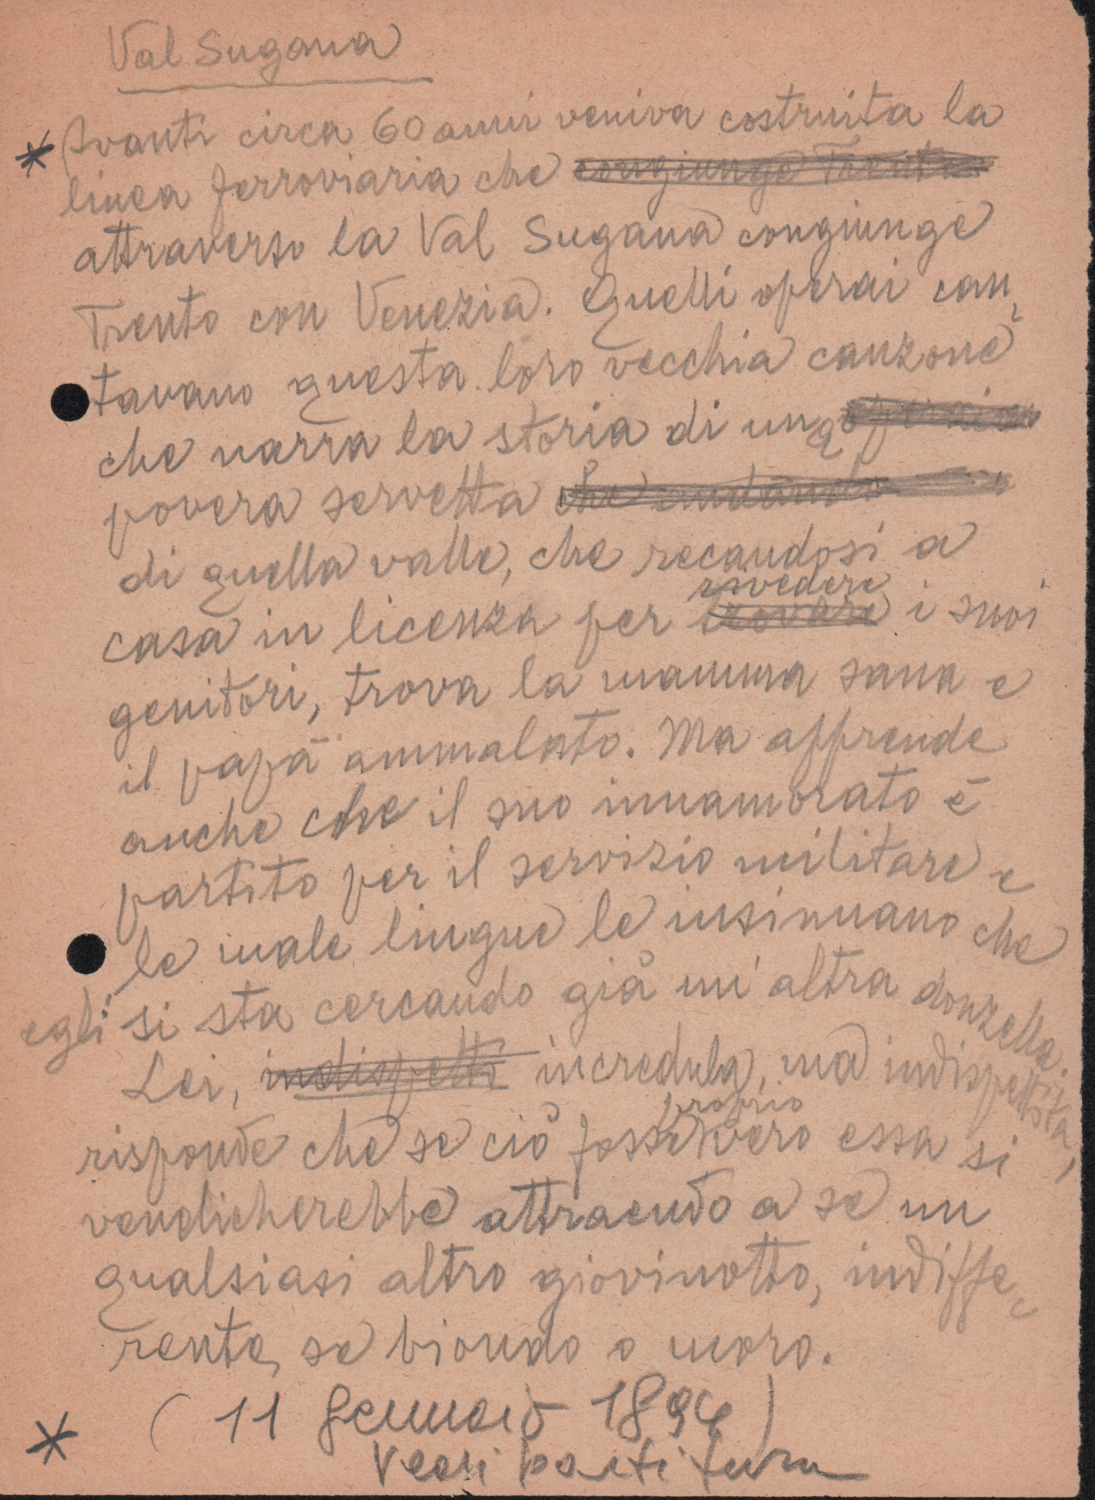 Val Sugana
* Avanti circa 60 anni veniva costruita la
linea ferroviaria che congiunge Trento
attraverso la Val Sugana congiunge
Trento con Venezia. Quelli operai can-
tavano questa loro vecchia canzone
che narra la storia di una
povera servetta che andando
di quella valle, che recandosi a
rivedere
casa in licenza per trovare i suoi
genitori, trova la mamma sana e
il papà ammalato. Ma apprende
anche che il suo innamorato è
partito per il servizio militare e
le male lingue le insinuano che
egli si sta cercando già un'altra donzella.
Lei, indispetti incredula, ma indispettita,
proprio
risponde che se ciò fosse vero essa si
vendicherebbe attraendo a se un
qualsiasi altro giovinotto, indiffe-
rente, se biondo o moro.
(11 Gennaio 1894)
* Vedi partitura